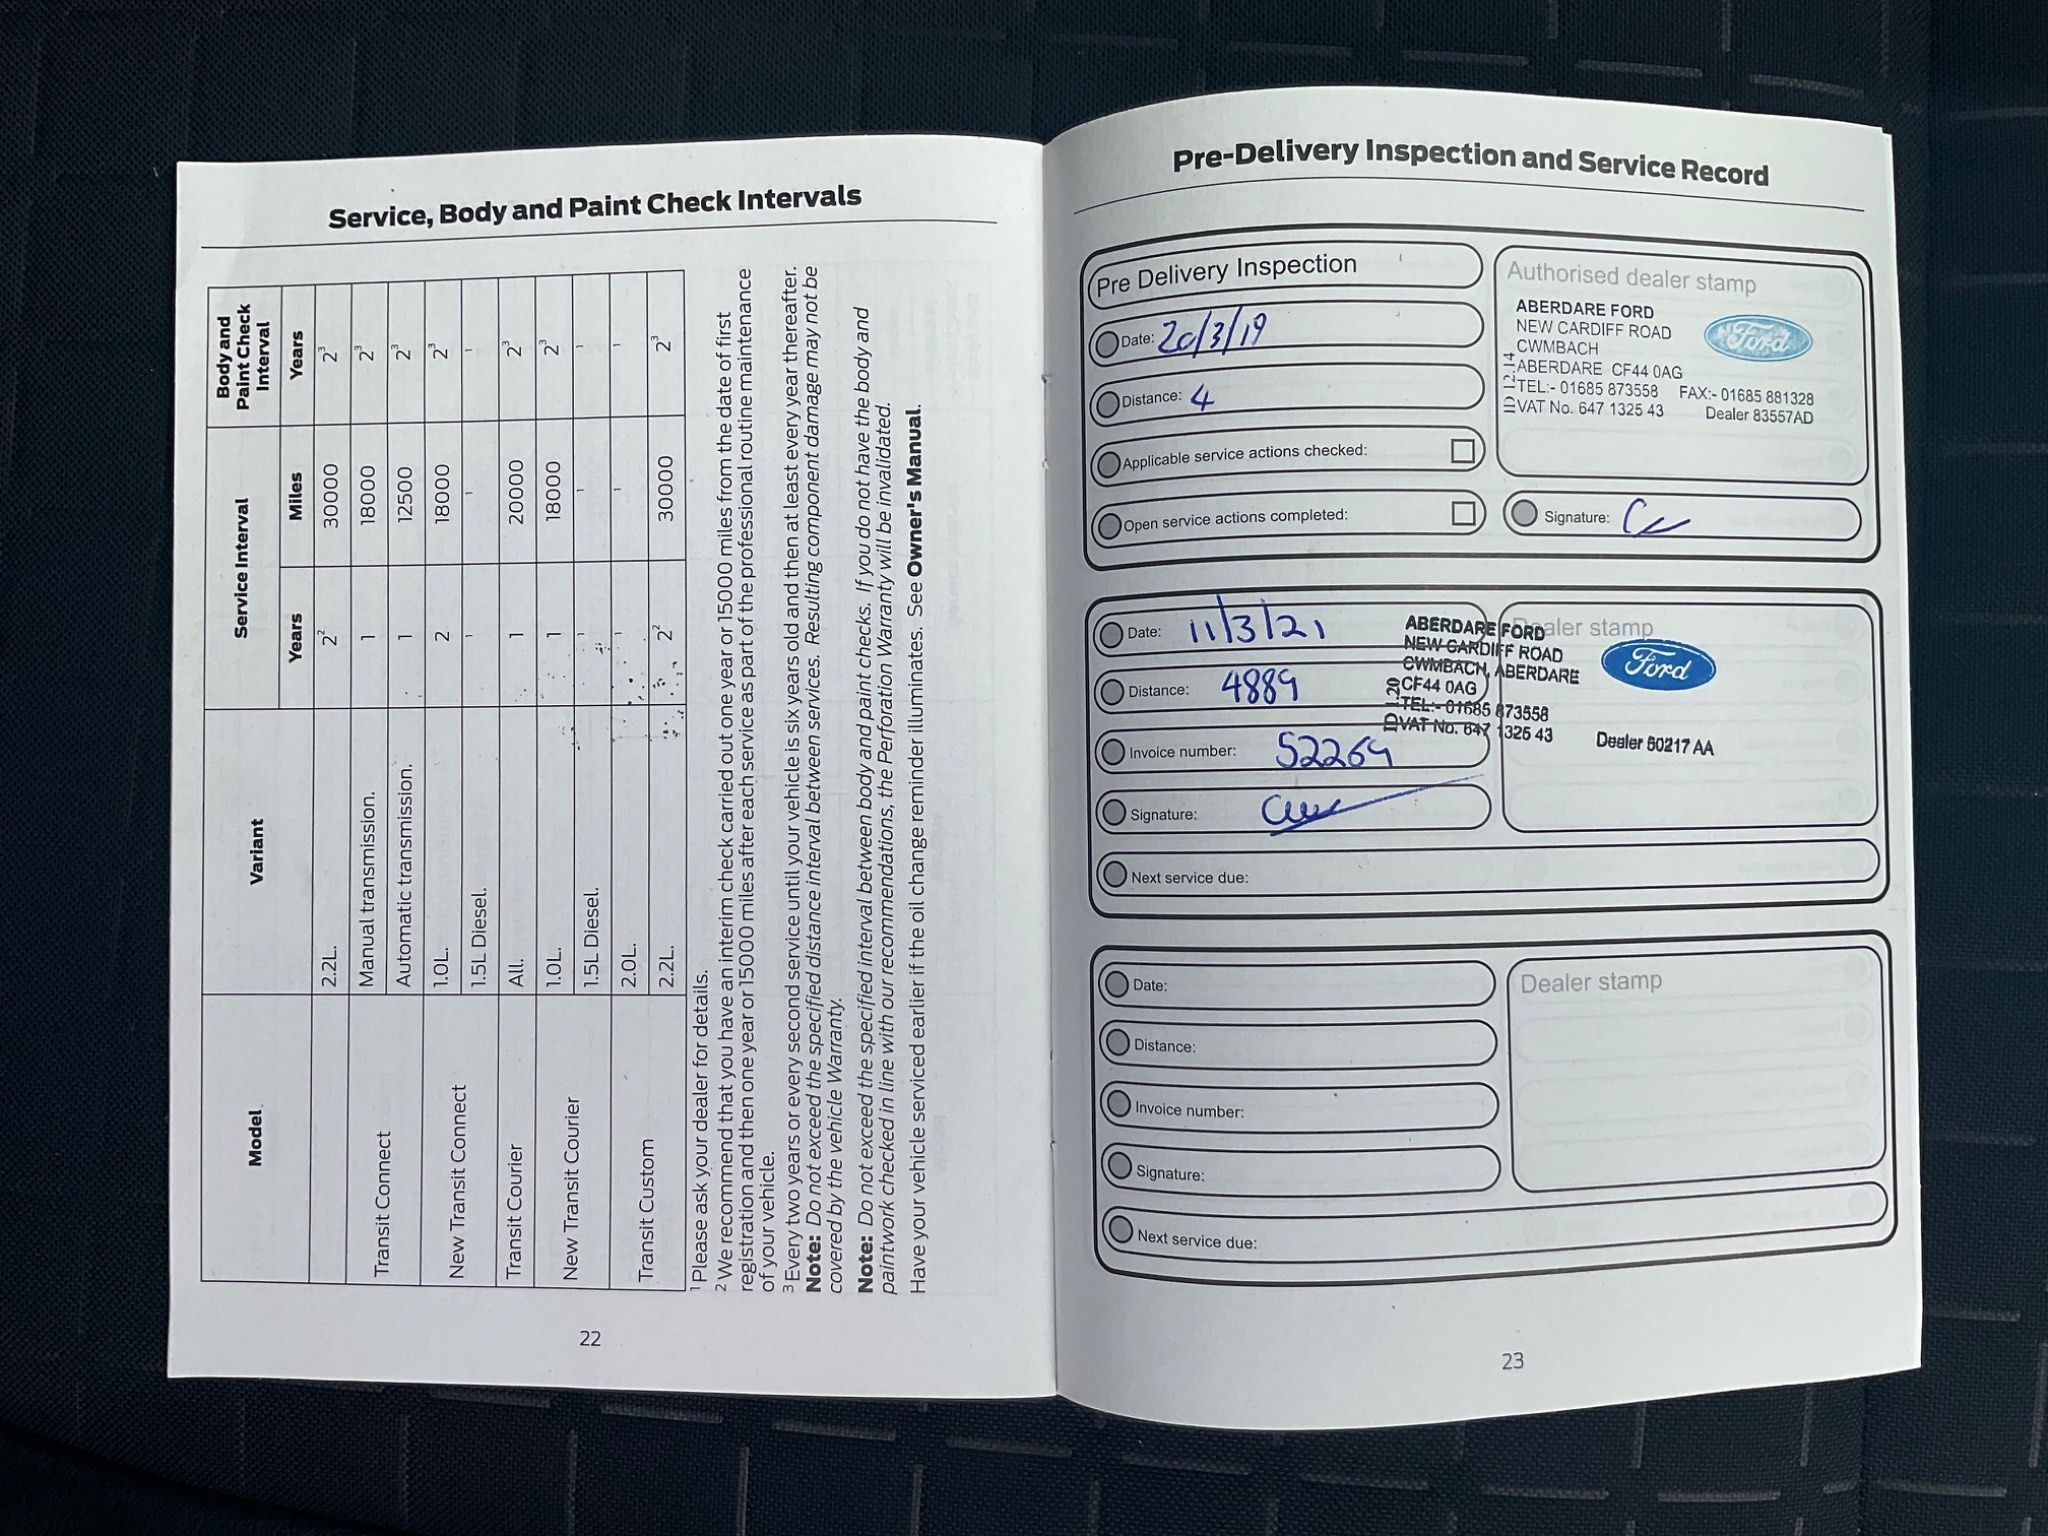 Service, Body and Paint Check Intervals
Model Variant Service Interval Body and Paint Check Interval
Years Miles Years
2.2L. 2² 30000 2³
Transit Connect Manual transmission. 1 18000 2³
Automatic transmission. 1 12500 2³
New Transit Connect 1.0L. 2 18000 2³
1.5L Diesel. ¹ ¹ ¹
Transit Courier All. 1 20000 2³
New Transit Courier 1.0L. 1 18000 2³
1.5L Diesel. ¹ ¹ ¹
Transit Custom 2.0L. ¹ ¹ ¹
2.2L. 2² 30000 2³
¹ Please ask your dealer for details.
² We recommend that you have an interim check carried out one year or 15000 miles from the date of first
registration and then one year or 15000 miles after each service as part of the professional routine maintenance
of your vehicle.
³ Every two years or every second service until your vehicle is six years old and then at least every year thereafter.
Note: Do not exceed the specified distance interval between services. Resulting component damage may not be
covered by the vehicle Warranty.
Note: Do not exceed the specified interval between body and paint checks. If you do not have the body and
paintwork checked in line with our recommendations, the Perforation Warranty will be invalidated.
Have your vehicle serviced earlier if the oil change reminder illuminates. See Owner's Manual.
22
Pre-Delivery Inspection and Service Record
Pre Delivery Inspection
Date: 20/3/19
Distance: 4
Applicable service actions checked:
Open service actions completed:
Authorised dealer stamp
ABERDARE FORD
NEW CARDIFF ROAD
CWMBACH
ABERDARE CF44 0AG
TEL:- 01685 873558 FAX:- 01685 881328
VAT No. 647 1325 43 Dealer 83557AD
Ford
Signature:
Date: 11/3/21
Distance: 4889
Invoice number: 52269
Signature:
Next service due:
Dealer stamp
ABERDARE FORD
NEW CARDIFF ROAD
CWMBACH, ABERDARE
CF44 0AG
TEL:- 01685 873558
VAT No. 647 1325 43 Dealer 50217 AA
Ford
Date:
Distance:
Invoice number:
Signature:
Next service due:
Dealer stamp
23